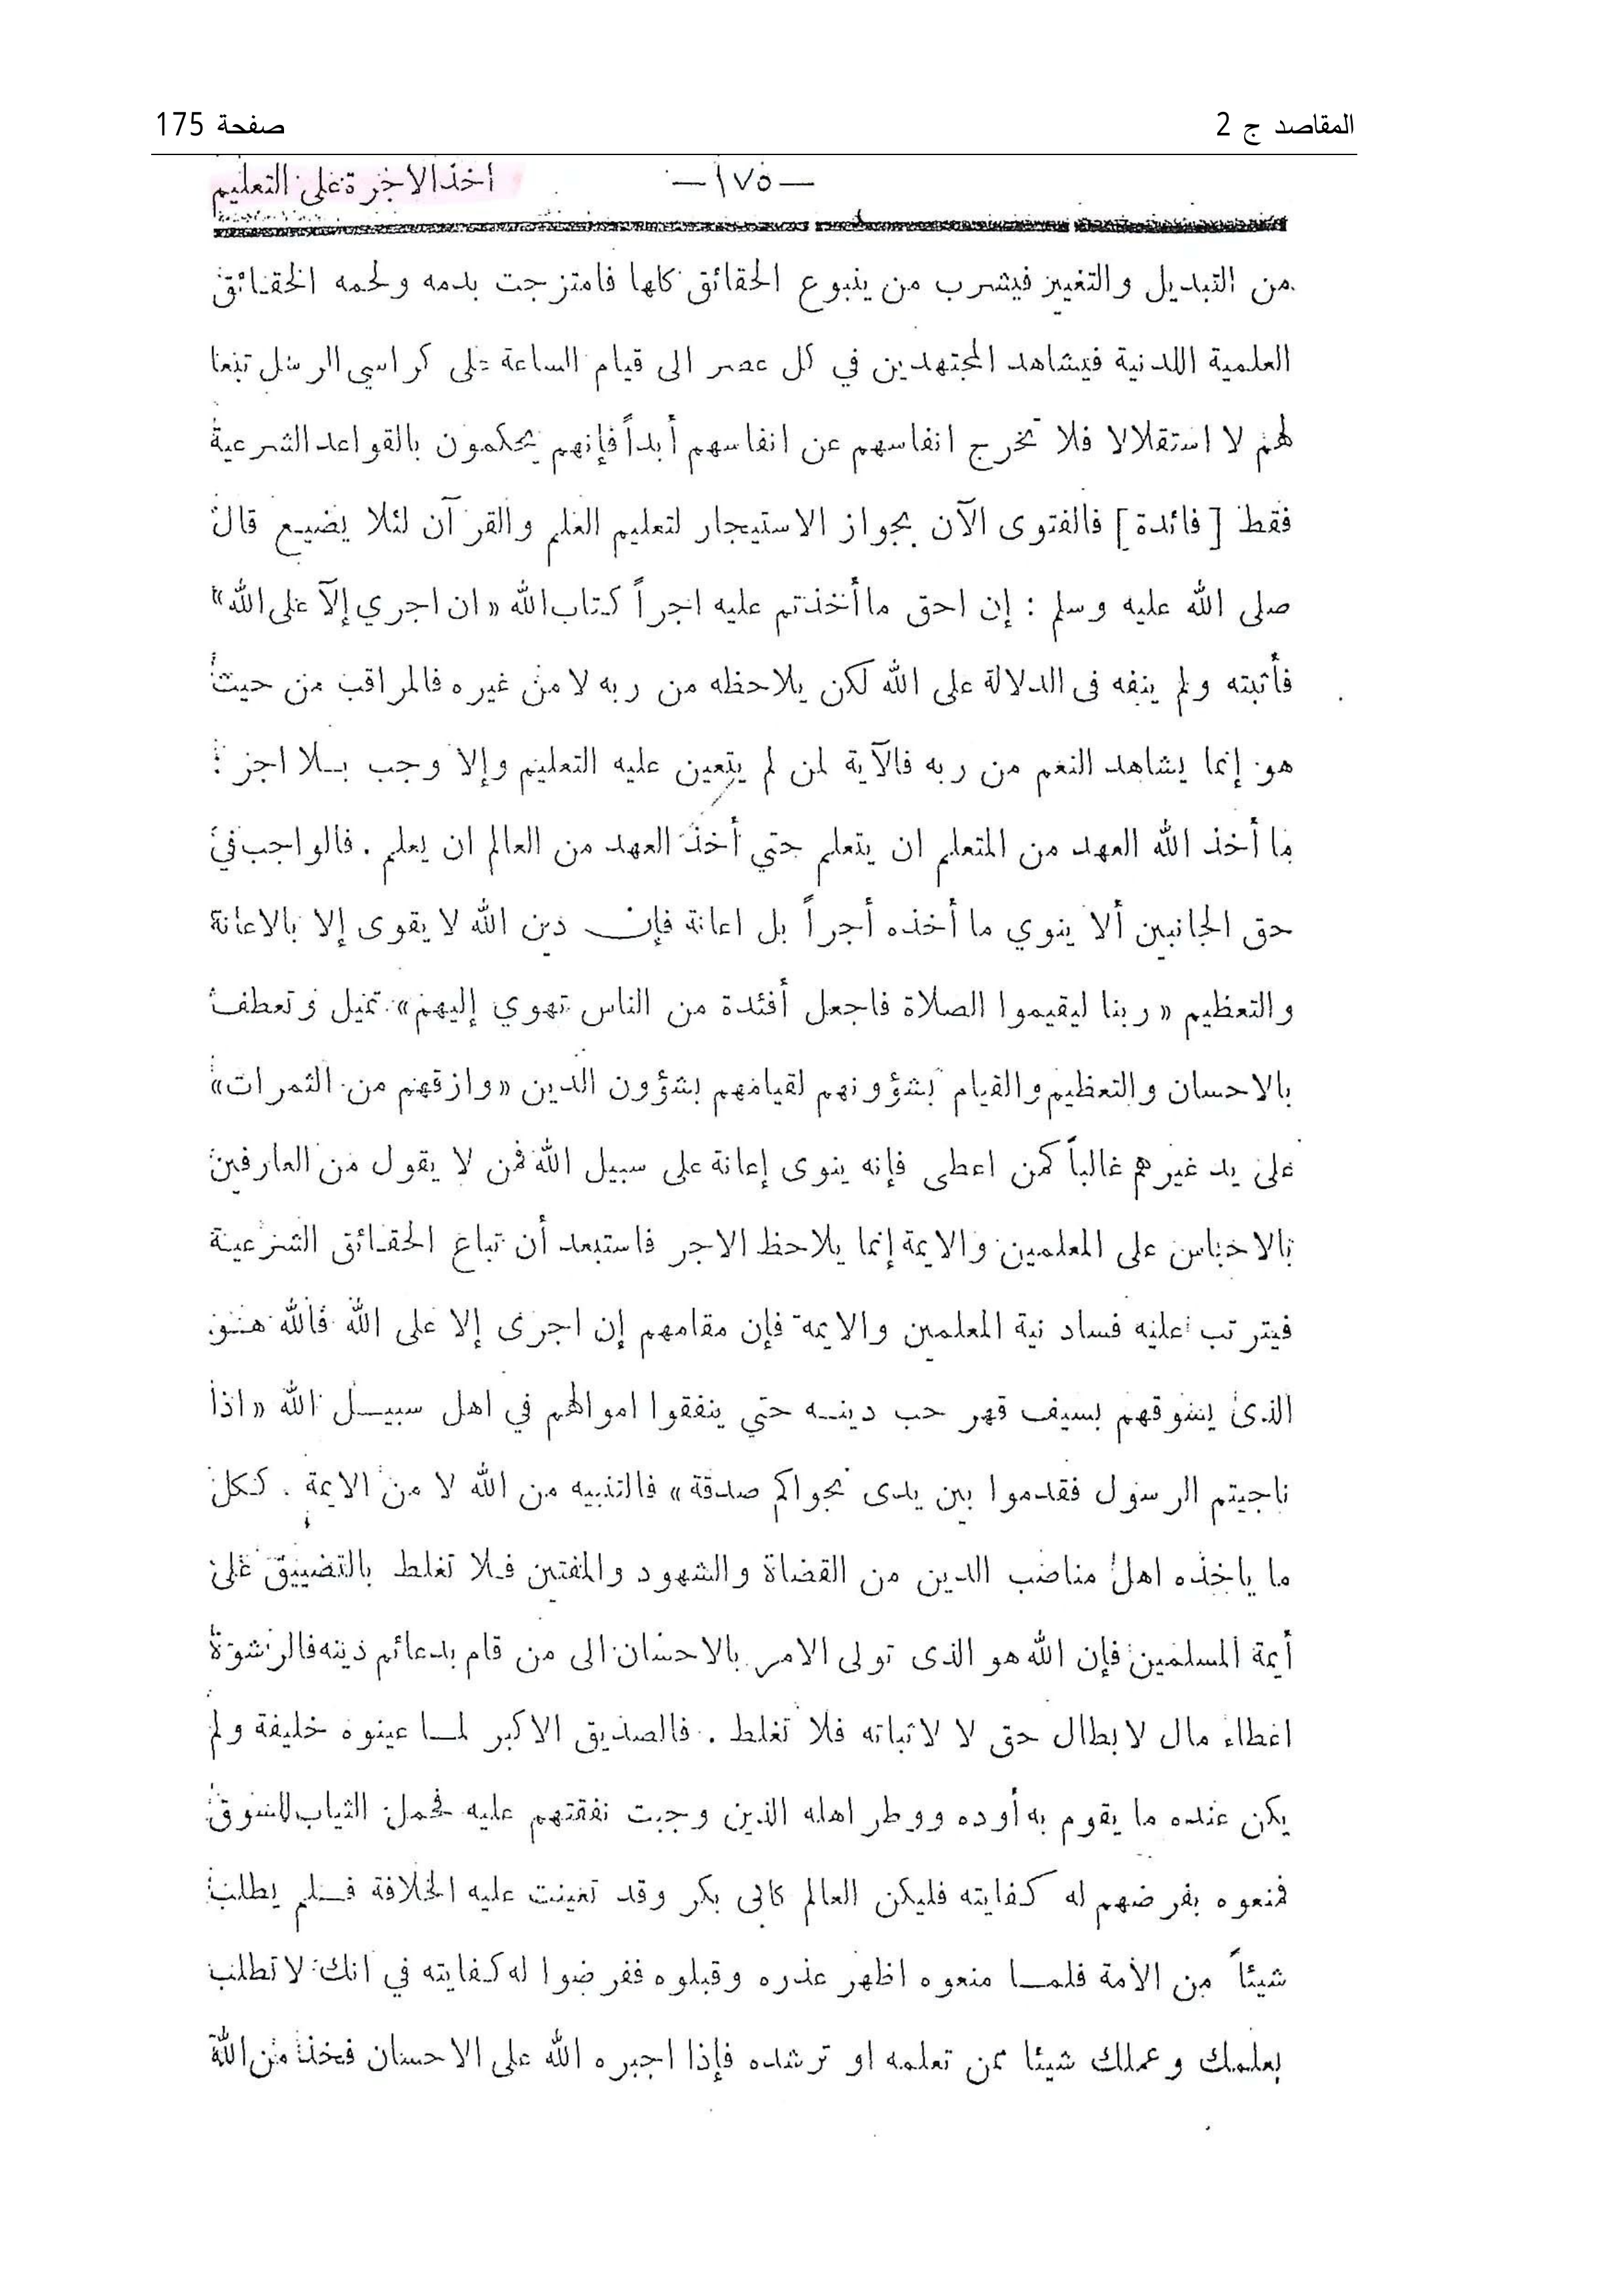 المقاصد ج 2
صفحة 175
أخذ الاجرة على التعليم
— ١٧٥ —
من التبديل والتغيير فيشرب من ينبوع الحقائق كلها فامتزجت بدمه ولحمه الحقائق
العلمية اللدنية فيشاهد المجتهدين في كل عصر الى قيام الساعة على كراسي الرسل تبعا
لهم لا استقلالا فلا تخرج انفاسهم عن انفاسهم أبداً فإنهم يحكمون بالقواعد الشرعية
فقط [ فائدة ] فالفتوى الآن بجواز الاستيجار لتعليم العلم والقرآن لئلا يضيع قال
صلى الله عليه وسلم : إن احق ما أخذتم عليه اجراً كتاب الله « ان اجري إلآ على الله »
فأثبته ولم ينفه فى الدلالة على الله لكن يلاحظه من ربه لا من غيره فالمراقب من حيث
هو إنما يشاهد النعم من ربه فالآية لمن لم يتعين عليه التعليم وإلا وجب بلا اجر :
ما أخذ الله العهد من المتعلم ان يتعلم حتي أخذ العهد من العالم ان يعلم . فالواجب في
حق الجانبين ألا ينوي ما أخذه أجراً بل اعانة فإن دين الله لا يقوى إلا بالاعانة
والتعظيم « ربنا ليقيموا الصلاة فاجعل أفئدة من الناس تهوي إليهم » تميل وتعطف
بالاحسان والتعظيم والقيام بشؤونهم لقيامهم بشؤون الدين « وارزقهم من الثمرات »
على يد غيرهم غالباً كمن اعطى فإنه ينوى إعانة على سبيل الله فمن لا يقول من العارفين
بالاحباس على المعلمين والايمة إنما يلاحظ الاجر فاستبعد أن تباع الحقائق الشرعية
فيترتب عليه فساد نية المعلمين والايمة فإن مقامهم إن اجرى إلا على الله فالله هو
الذى يسوقهم بسيف قهر حب دينه حتي ينفقوا اموالهم في اهل سبيل الله « اذا
ناجيتم الرسول فقدموا بين يدى نجواكم صدقة » فالتنبيه من الله لا من الايمة . ككل
ما ياخذه اهل مناصب الدين من القضاة والشهود والمفتين فلا تغلط بالتضييق على
أيمة المسلمين فإن الله هو الذى تولى الامر بالاحسان الى من قام بدعائم دينه فالرشوة
اعطاء مال لابطال حق لا لاثباته فلا تغلط . فالصديق الاكبر لما عينوه خليفة ولم
يكن عنده ما يقوم به أوده ووطر اهله الذين وجبت نفقتهم عليه فحمل الثياب للسوق
فمنعوه بفرضهم له كفايته فليكن العالم كابى بكر وقد تعينت عليه الخلافة فلم يطلب
شيئاً من الأمة فلما منعوه اظهر عذره وقبلوه ففرضوا له كفايته في انك لا تطلب
بعلمك وعملك شيئا ممن تعلمه او ترشده فإذا اجبره الله على الاحسان فخذ من الله